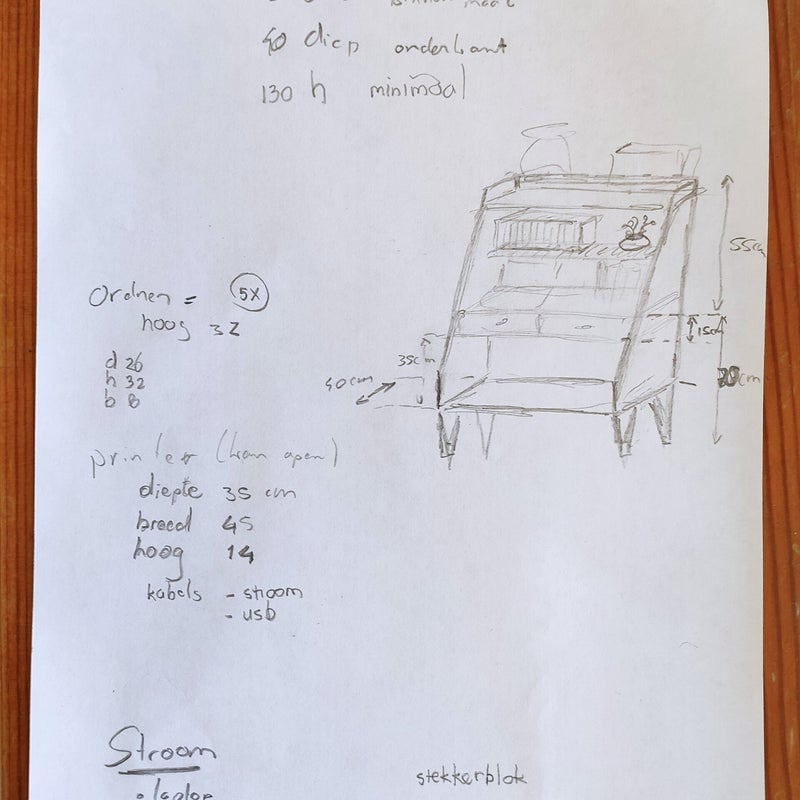 40 diep onderkant
130 h minimaal
55cm
15cm
35cm
40cm
cm
Ordnen = 5x
hoog 32
d 26
h 32
b 8
printer (kan open)
diepte 35 cm
breed 45
hoog 14
kabels - stroom
- usb
Stroom
stekkerblok
• laptop